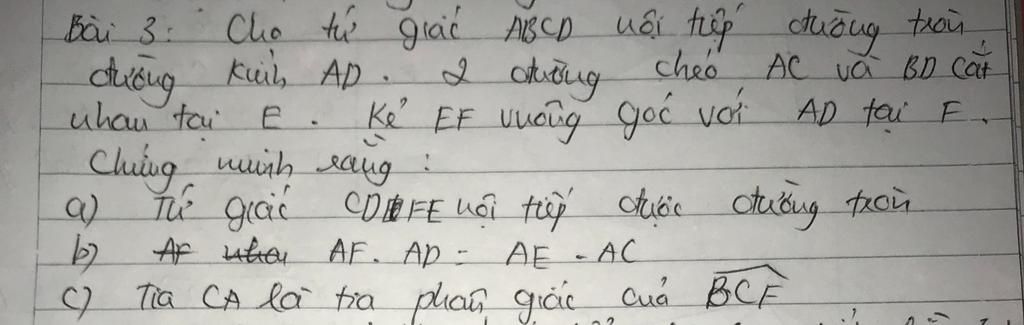 Bài 3: Cho tứ giác ABCD nội tiếp đường tròn
đường kính AD. 2 đường chéo AC và BD cắt
nhau tại E. Kẻ EF vuông góc với AD tại F.
Chứng minh rằng:
a) Tứ giác CDFE nội tiếp được đường tròn
b) AF. AD = AE . AC
c) Tia CA là tia phân giác của BCF